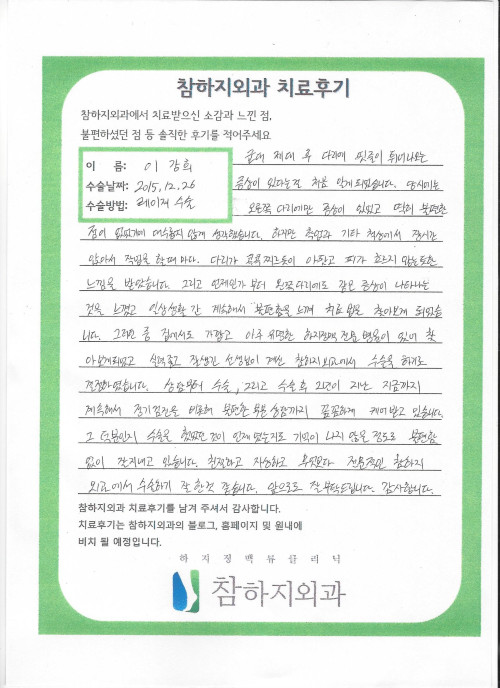 참하지외과 치료후기
참하지외과에서 치료받으신 소감과 느낀 점,
불편하셨던 점 등 솔직한 후기를 적어주세요
이 름: 이강희
수술날짜: 2015.12.26
수술방법: 레이저 수술
군대 제대 후 다리에 핏줄이 튀어나오는
증상이 있다는걸 처음 알게 되었습니다. 당시에는
오른쪽 다리에만 증상이 있었고 딱히 불편한
점이 없었기에 대수롭지 않게 생각했습니다. 하지만 학업과 기타 책상에서 장시간
앉아서 작업을 할때 마다. 다리가 콕콕 찌르듯이 아팠고 피가 흐르지 않는듯한
느낌을 받았습니다. 그리고 언제인가부터 왼쪽다리에도 같은 증상이 나타나는
것을 느꼈고 일상생활 간 계속해서 불편함을 느껴 치료 방법을 찾아보게 되었습
니다. 그러던 중 집에서도 가깝고 아주 유명한 하지정맥 전문 병원이 있어 찾
아보게되었고 실력좋고 잘생긴 선생님이 계신 참하지외과에서 수술을 하기로
결정하였습니다. 상담부터 수술, 그리고 수술 후 2년이 지난 지금까지
계속해서 정기검진을 비롯해 불편한 부분 상담까지 꼼꼼하게 케어받고 있습니다.
그 덕분인지 수술을 했었던 것이 언제였는지도 기억이 나지 않을 정도로 불편함
없이 잘지내고 있습니다. 친절하고 자상하고 무엇보다 전문적인 참하지
외과에서 수술하기 잘한것 같습니다. 앞으로도 잘 부탁드립니다. 감사합니다.
참하지외과 치료후기를 남겨 주셔서 감사합니다.
치료후기는 참하지외과의 블로그, 홈페이지 및 원내에
비치 될 예정입니다.
하지정맥류클리닉
참하지외과